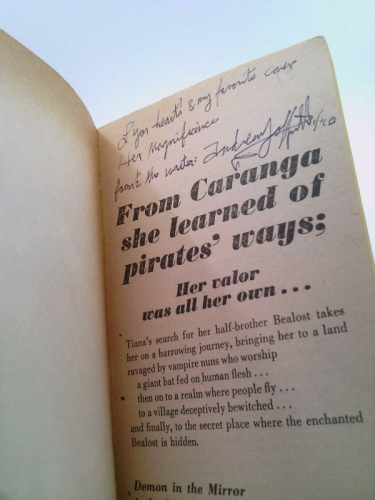 & my favorite cover
Her Magnificence
from the writer: Andrew Offutt
From Caranga
she learned of
pirates' ways;
Her valor
was all her own . . .
Tiana's search for her half-brother Bealost takes
her on a harrowing journey, bringing her to a land
ravaged by vampire nuns who worship
a giant bat fed on human flesh . . .
then on to a realm where people fly . . .
to a village deceptively bewitched . . .
and finally, to the secret place where the enchanted
Bealost is hidden.
Demon in the Mirror